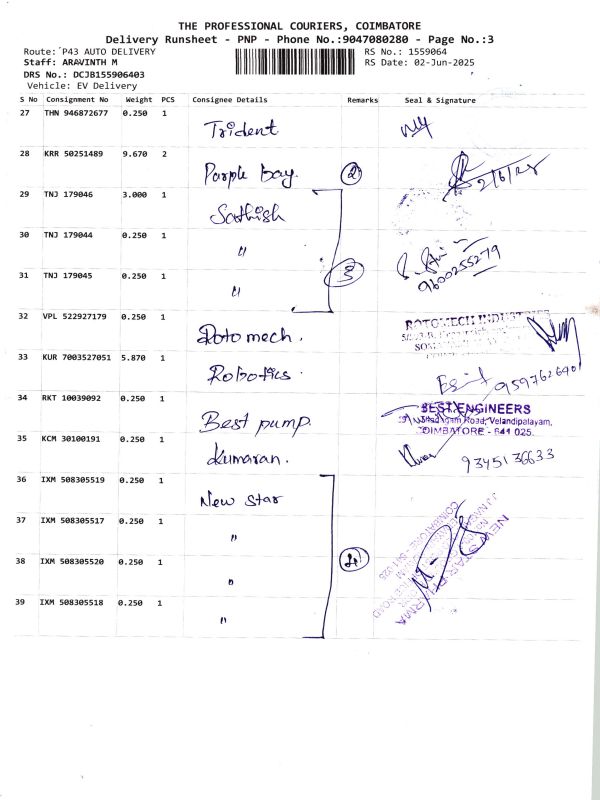 THE PROFESSIONAL COURIERS, COIMBATORE
Delivery Runsheet - PNP - Phone No.:9047080280 - Page No.:3
Route: P43 AUTO DELIVERY RS No.: 1559064
Staff: ARAVINTH M RS Date: 02-Jun-2025
DRS No.: DCJB155906403
Vehicle: EV Delivery
S No Consignment No Weight PCS Consignee Details Remarks Seal & Signature
27 THN 946872677 0.250 1 Trident
28 KRR 50251489 9.670 2 Purple bay. 2 2/6/25
29 TNJ 179046 3.000 1 Sathish
30 TNJ 179044 0.250 1 "
31 TNJ 179045 0.250 1 " 3 9600255279
32 VPL 522927179 0.250 1 Rotomech. ROTOMECH INDUSTRIES
33 KUR 7003527051 5.870 1 Robotics.
34 RKT 10039092 0.250 1 Best pump. BEST ENGINEERS
Road, Velandipalayam,
COIMBATORE - 641 025.
35 KCM 30100191 0.250 1 Kumaran. 9345136633
36 IXM 508305519 0.250 1 New Star
37 IXM 508305517 0.250 1 "
38 IXM 508305520 0.250 1 " 4 NEW STAR PHARMA
39 IXM 508305518 0.250 1 "